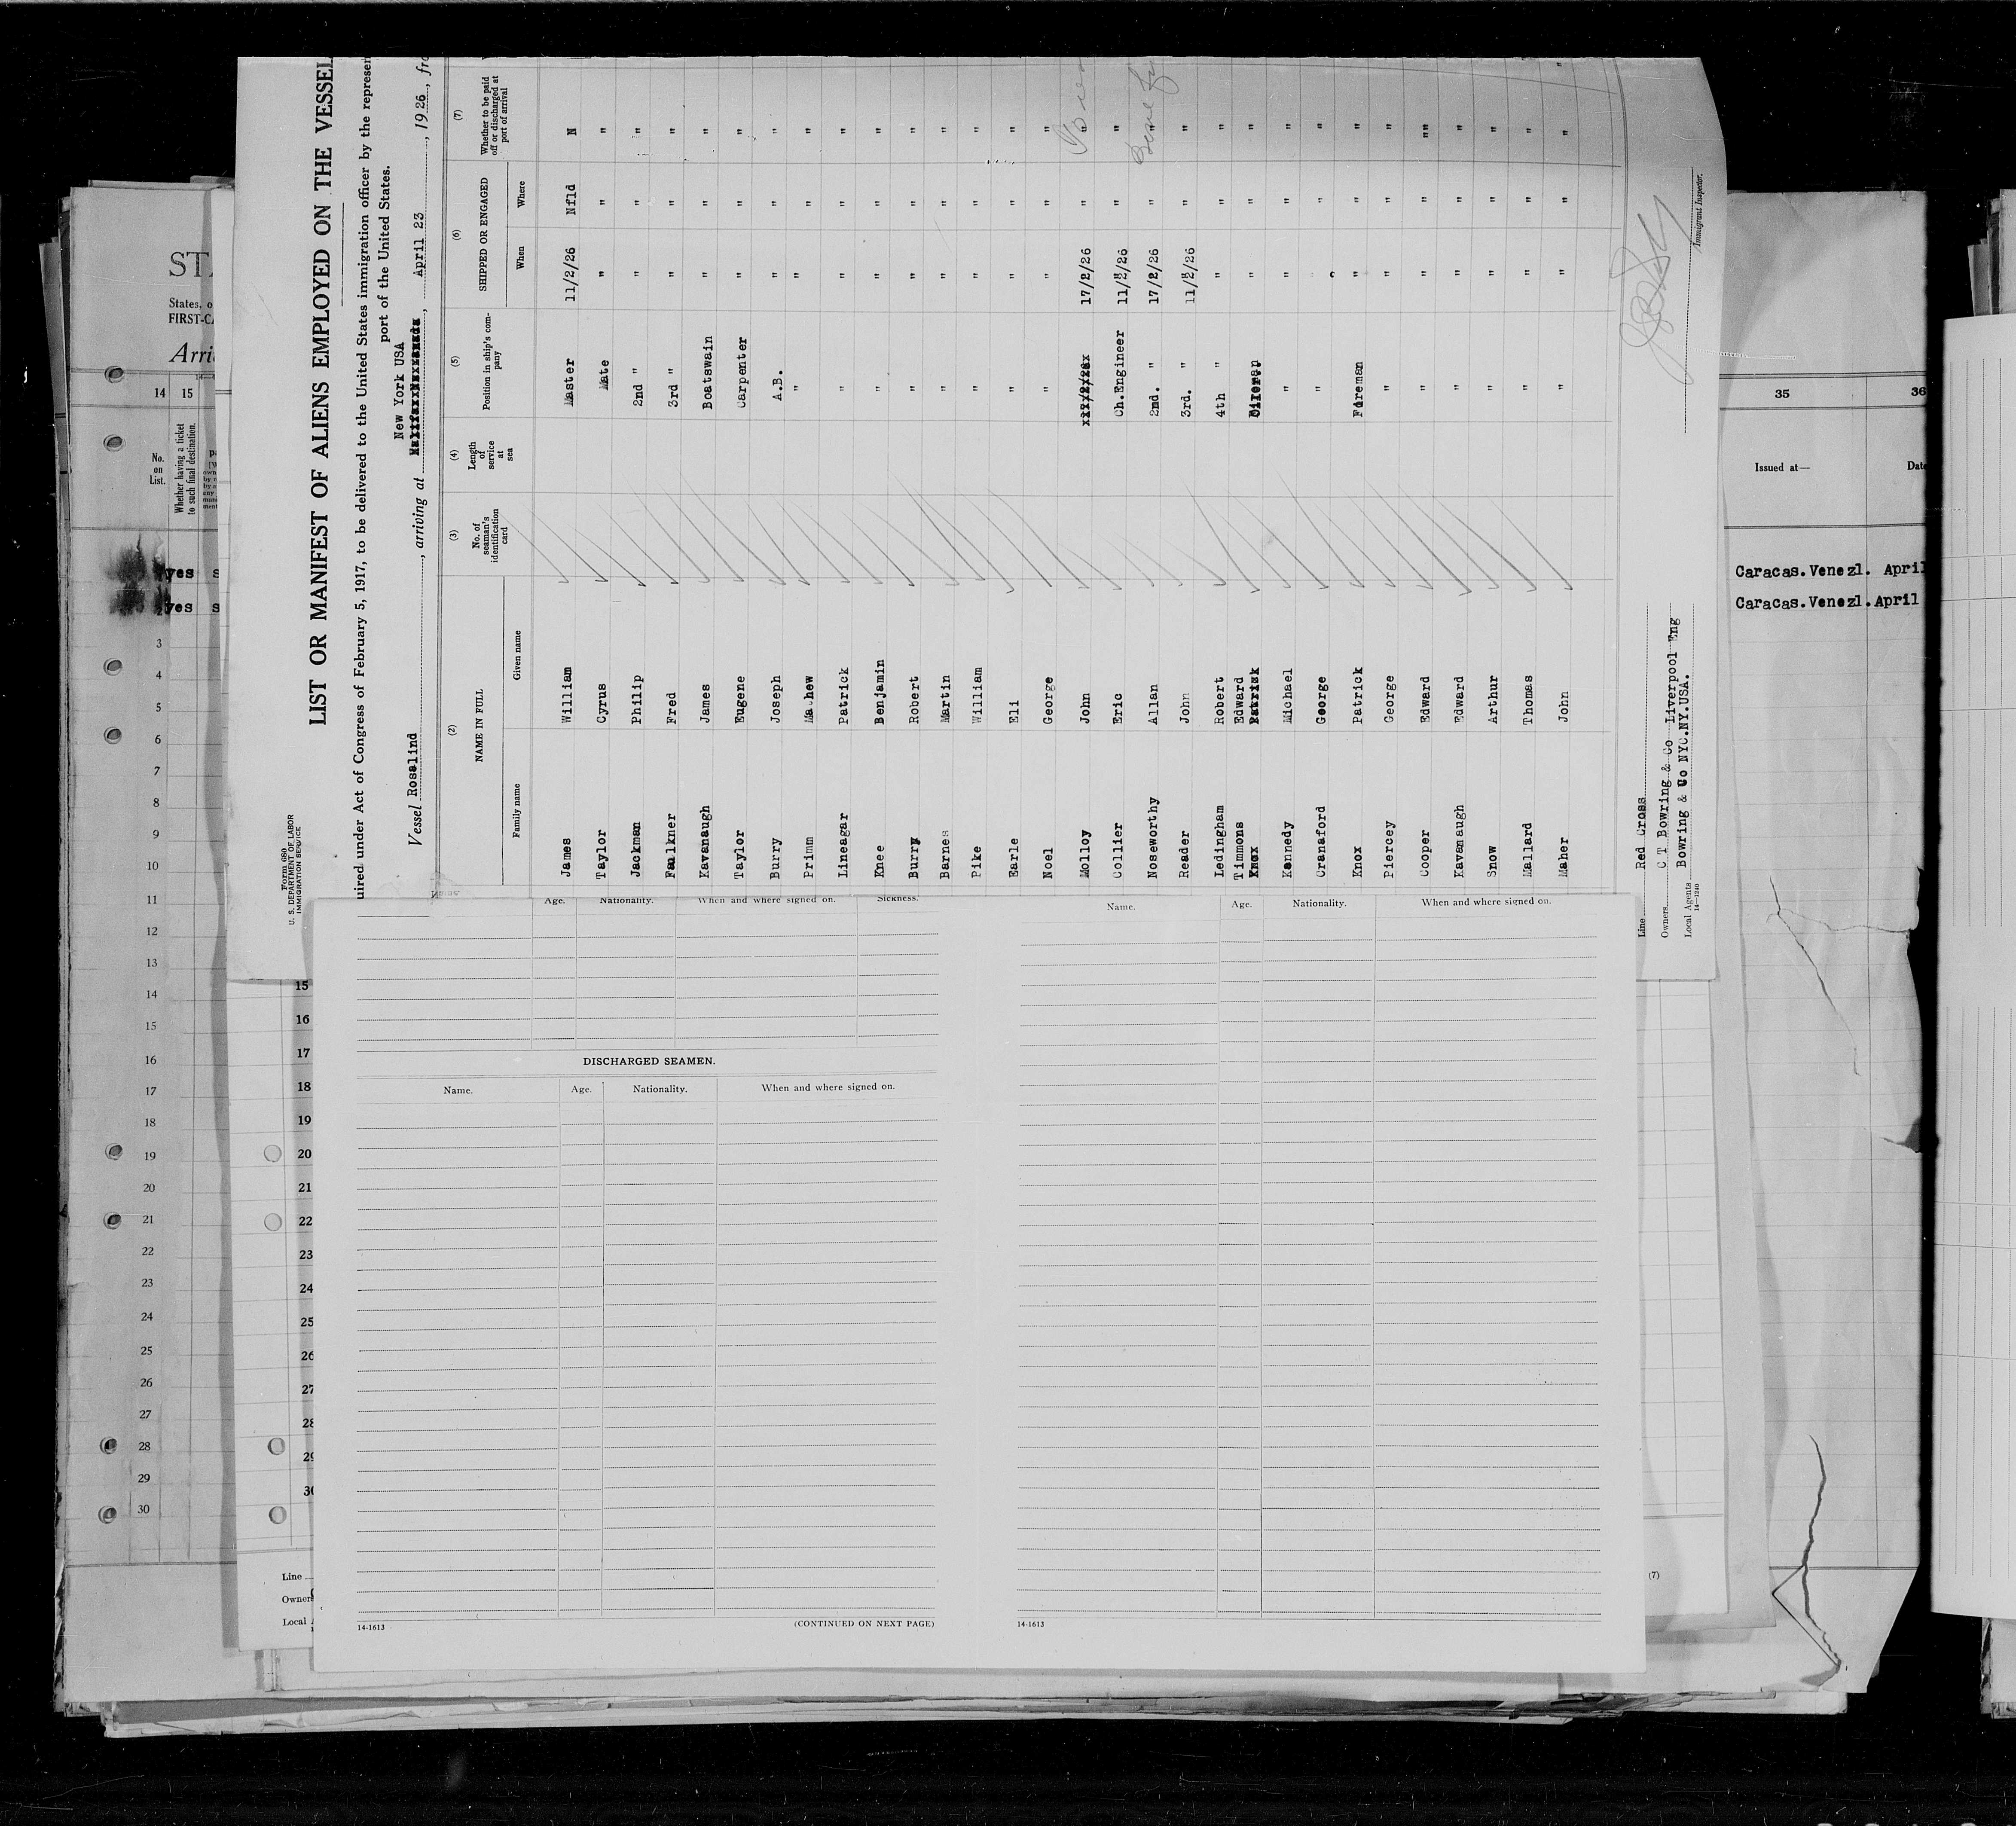 Form 680
U. S. DEPARTMENT OF LABOR
IMMIGRATION SERVICE
LIST OR MANIFEST OF ALIENS EMPLOYED ON THE VESSEL
uired under Act of Congress of February 5, 1917, to be delivered to the United States immigration officer by the represen
port of the United States.
New York USA
Vessel Rosalind, arriving at, April 23, 1926, fro
(2) (3) (4) (5) (6) (7)
NAME IN FULL No. of seaman's identification card Length of service at sea Position in ship's company SHIPPED OR ENGAGED Whether to be paid off or discharged at port of arrival
Family name Given name When Where
James William Master 11/2/26 Nfld N
Taylor Cyrus Mate " " "
Jackman Philip 2nd " " " "
Faulkner Fred 3rd " " " "
Kavanaugh James Boatswain " " "
Taylor Eugene Carpenter " " "
Burry Joseph A.B. " " "
Primm Mathew " " " "
Lineagar Patrick " " " "
Knee Benjamin " " " "
Burry Robert " " " "
Barnes Martin " " " "
Pike William " " " "
Earle Eli " " " "
Noel George " " " "
Molloy John 17/2/26 " "
Collier Eric Ch.Engineer 11/2/26 " "
Noseworthy Allan 2nd. " 17/2/26 " "
Reader John 3rd. " 11/2/26 " "
Ledingham Robert 4th " " " "
Timmons Edward
Knox Patrick " " "
Kennedy Michael " " " "
Cransford George " " " "
Knox Patrick Fireman " " "
Piercey George " " " "
Cooper Edward " " " ""
Kavanaugh Edward " " " "
Snow Arthur " " " "
Mallard Thomas " " " "
Maher John " " " "
Line Red Cross
Owners C T Bowring & Co Liverpool Eng
Local Agents Bowring & Co NYC.NY.USA.
14-1240
Immigrant Inspector.
STA
States, o
FIRST-CA
Arri
14 15
No. on List.
Whether having a ticket to such final destination.
yes s
yes s
3
4
5
6
7
8
9
10
11
12
13
14
15
16
17
18
19
20
21
22
23
24
25
26
27
28
29
30
35 36
Issued at— Date
Caracas.Venezl. April
Caracas.Venezl.April
15
16
17
18
19
20
21
22
23
24
25
26
27
28
29
30
Line
Owner
Local
(7)
Age. Nationality. When and where signed on. Sickness.
DISCHARGED SEAMEN.
Name. Age. Nationality. When and where signed on.
14-1613
(CONTINUED ON NEXT PAGE)
Name. Age. Nationality. When and where signed on.
14-1613